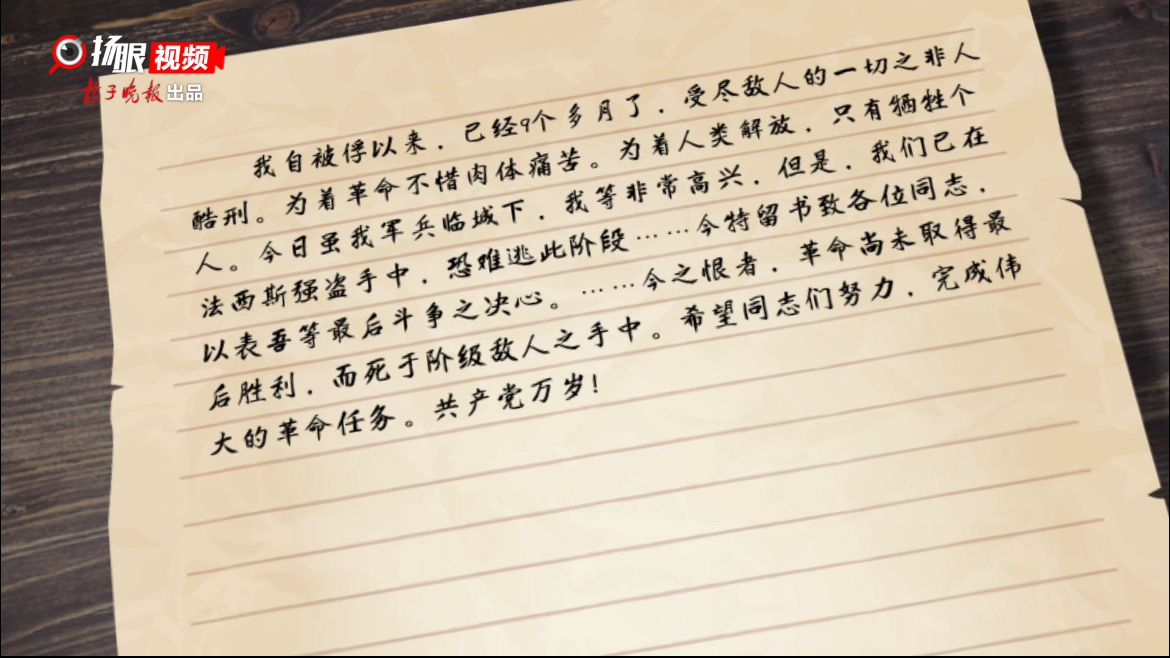 扬眼视频
扬子晚报出品
我自被俘以来，已经9个多月了，受尽敌人的一切之非人
酷刑。为着革命不惜肉体痛苦。为着人类解放，只有牺牲个
人。今日虽我军兵临城下，我等非常高兴，但是，我们已在
法西斯强盗手中，恐难逃此阶段……今特留书致各位同志，
以表吾等最后斗争之决心。……今之恨者，革命尚未取得最
后胜利，而死于阶级敌人之手中。希望同志们努力，完成伟
大的革命任务。共产党万岁！